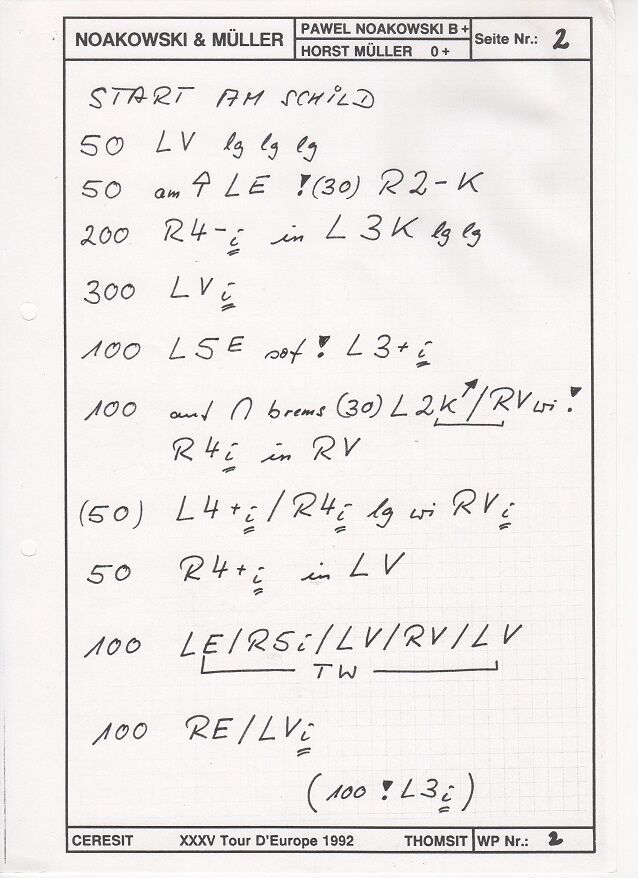 NOAKOWSKI & MÜLLER
PAWEL NOAKOWSKI B +
HORST MÜLLER 0 +
Seite Nr.: 2
START AM SCHILD
50 LV lg lg lg
50 am ↑ LE ! (30) R2-K
200 R4-i in L3K lg lg
300 LVi
100 L5E sof! L3+i
100 auf ∩ brems (30) L2K↗/RV wi!
R4i in RV
(50) L4+i/R4i lg wi RVi
50 R4+i in LV
100 LE/R5i/LV/RV/LV
TW
100 RE/LVi
(100 ! L3i)
CERESIT XXXV Tour D'Europe 1992 THOMSIT WP Nr.: 2